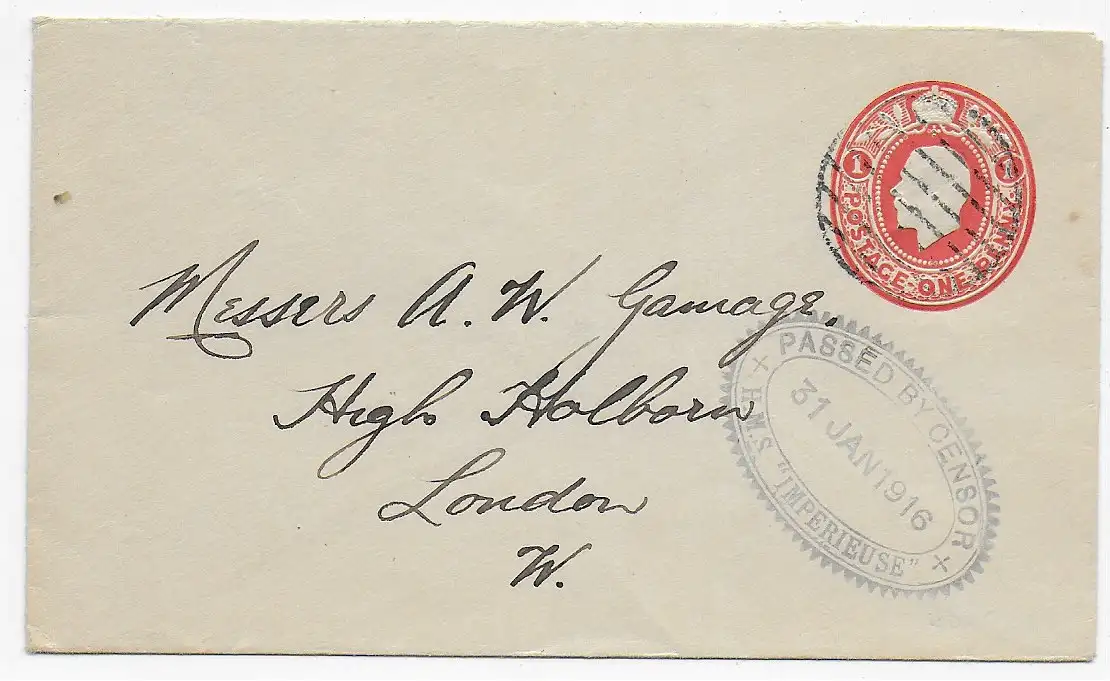 1 1
POSTAGE · ONE PENNY
Messers A. W. Gamage,
High Holborn
London
W.
PASSED BY CENSOR
31 JAN 1916
H.M.S. "IMPERIEUSE"